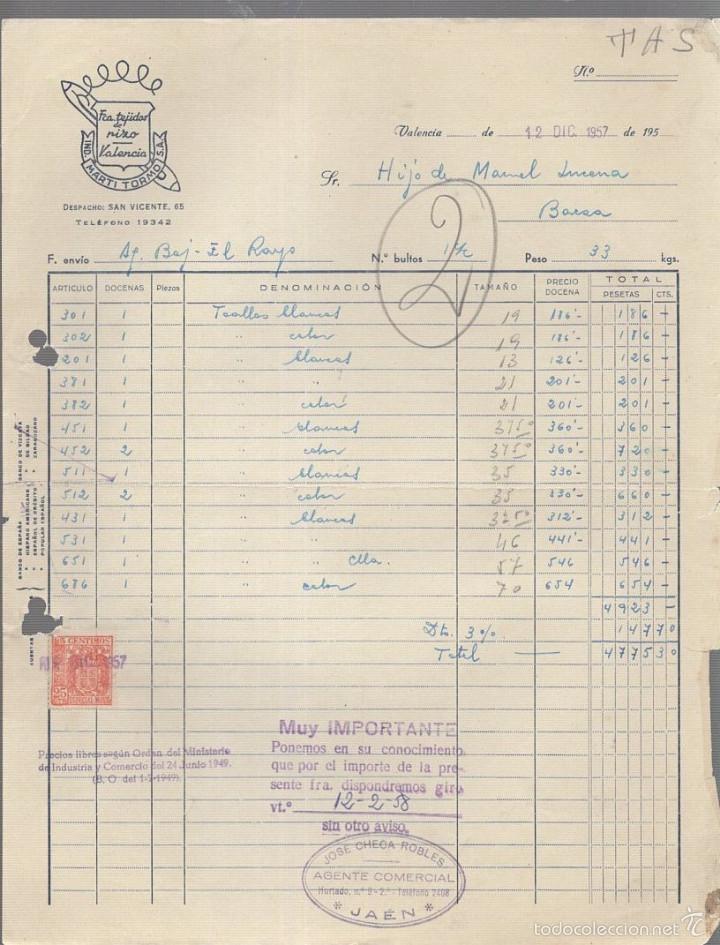 TAS
N.º
Fca. tejidos
de
rizo
Valencia
IND. MARTI TORMO S.A.
DESPACHO: SAN VICENTE, 65
TELÉFONO 19342
Valencia de 12 DIC. 1957 de 195
Sr. Hijo de Manuel Lucena
Baeza
2
F. envío Ag. Baj-El Rayo N.º bultos 1 Peso 33 kgs.
ARTICULO DOCENAS Piezas DENOMINACIÓN TAMAÑO PRECIO DOCENA TOTAL
PESETAS CTS.
301 1 Toallas blancas 19 186'- 186 -
302 1 " color 19 186'- 186 -
201 1 " blancas 13 126'- 126 -
381 1 " " 21 201'- 201 -
382 1 " color 21 201'- 201 -
451 1 " blancas 3750 360'- 360 -
452 2 " color 3750 360'- 720 -
511 1 " blancas 35 330'- 330 -
512 2 " color 35 330'- 660 -
431 1 " blancas 3250 312'- 312 -
531 1 " " 46 441'- 441 -
651 1 " " Clla. 57 546 546 -
686 1 " color 70 654 654 -
4923 -
Dto. 3% 14770
Total — 477530
BANCO DE ESPAÑA
" HISPANO AMERICANO
" ESPAÑOL DE CRÉDITO
" POPULAR ESPAÑOL
BANCO DE VIZCAYA
" DE BILBAO
" ZARAGOZANO
CUENTAS
25 CENTIMOS
DIC. 1957
25
Precios libres según Orden del Ministerio
de Industria y Comercio del 24 Junio 1949.
(B. O. del 1-7-1949).
Muy IMPORTANTE
Ponemos en su conocimiento
que por el importe de la pre-
sente fra. dispondremos giro
vt.º 12-2-58
sin otro aviso.
JOSÉ CHECA ROBLES
AGENTE COMERCIAL
Hurtado, n.º 9 - 2.º - Teléfono 2408
* JAÉN *
© todocoleccion.net